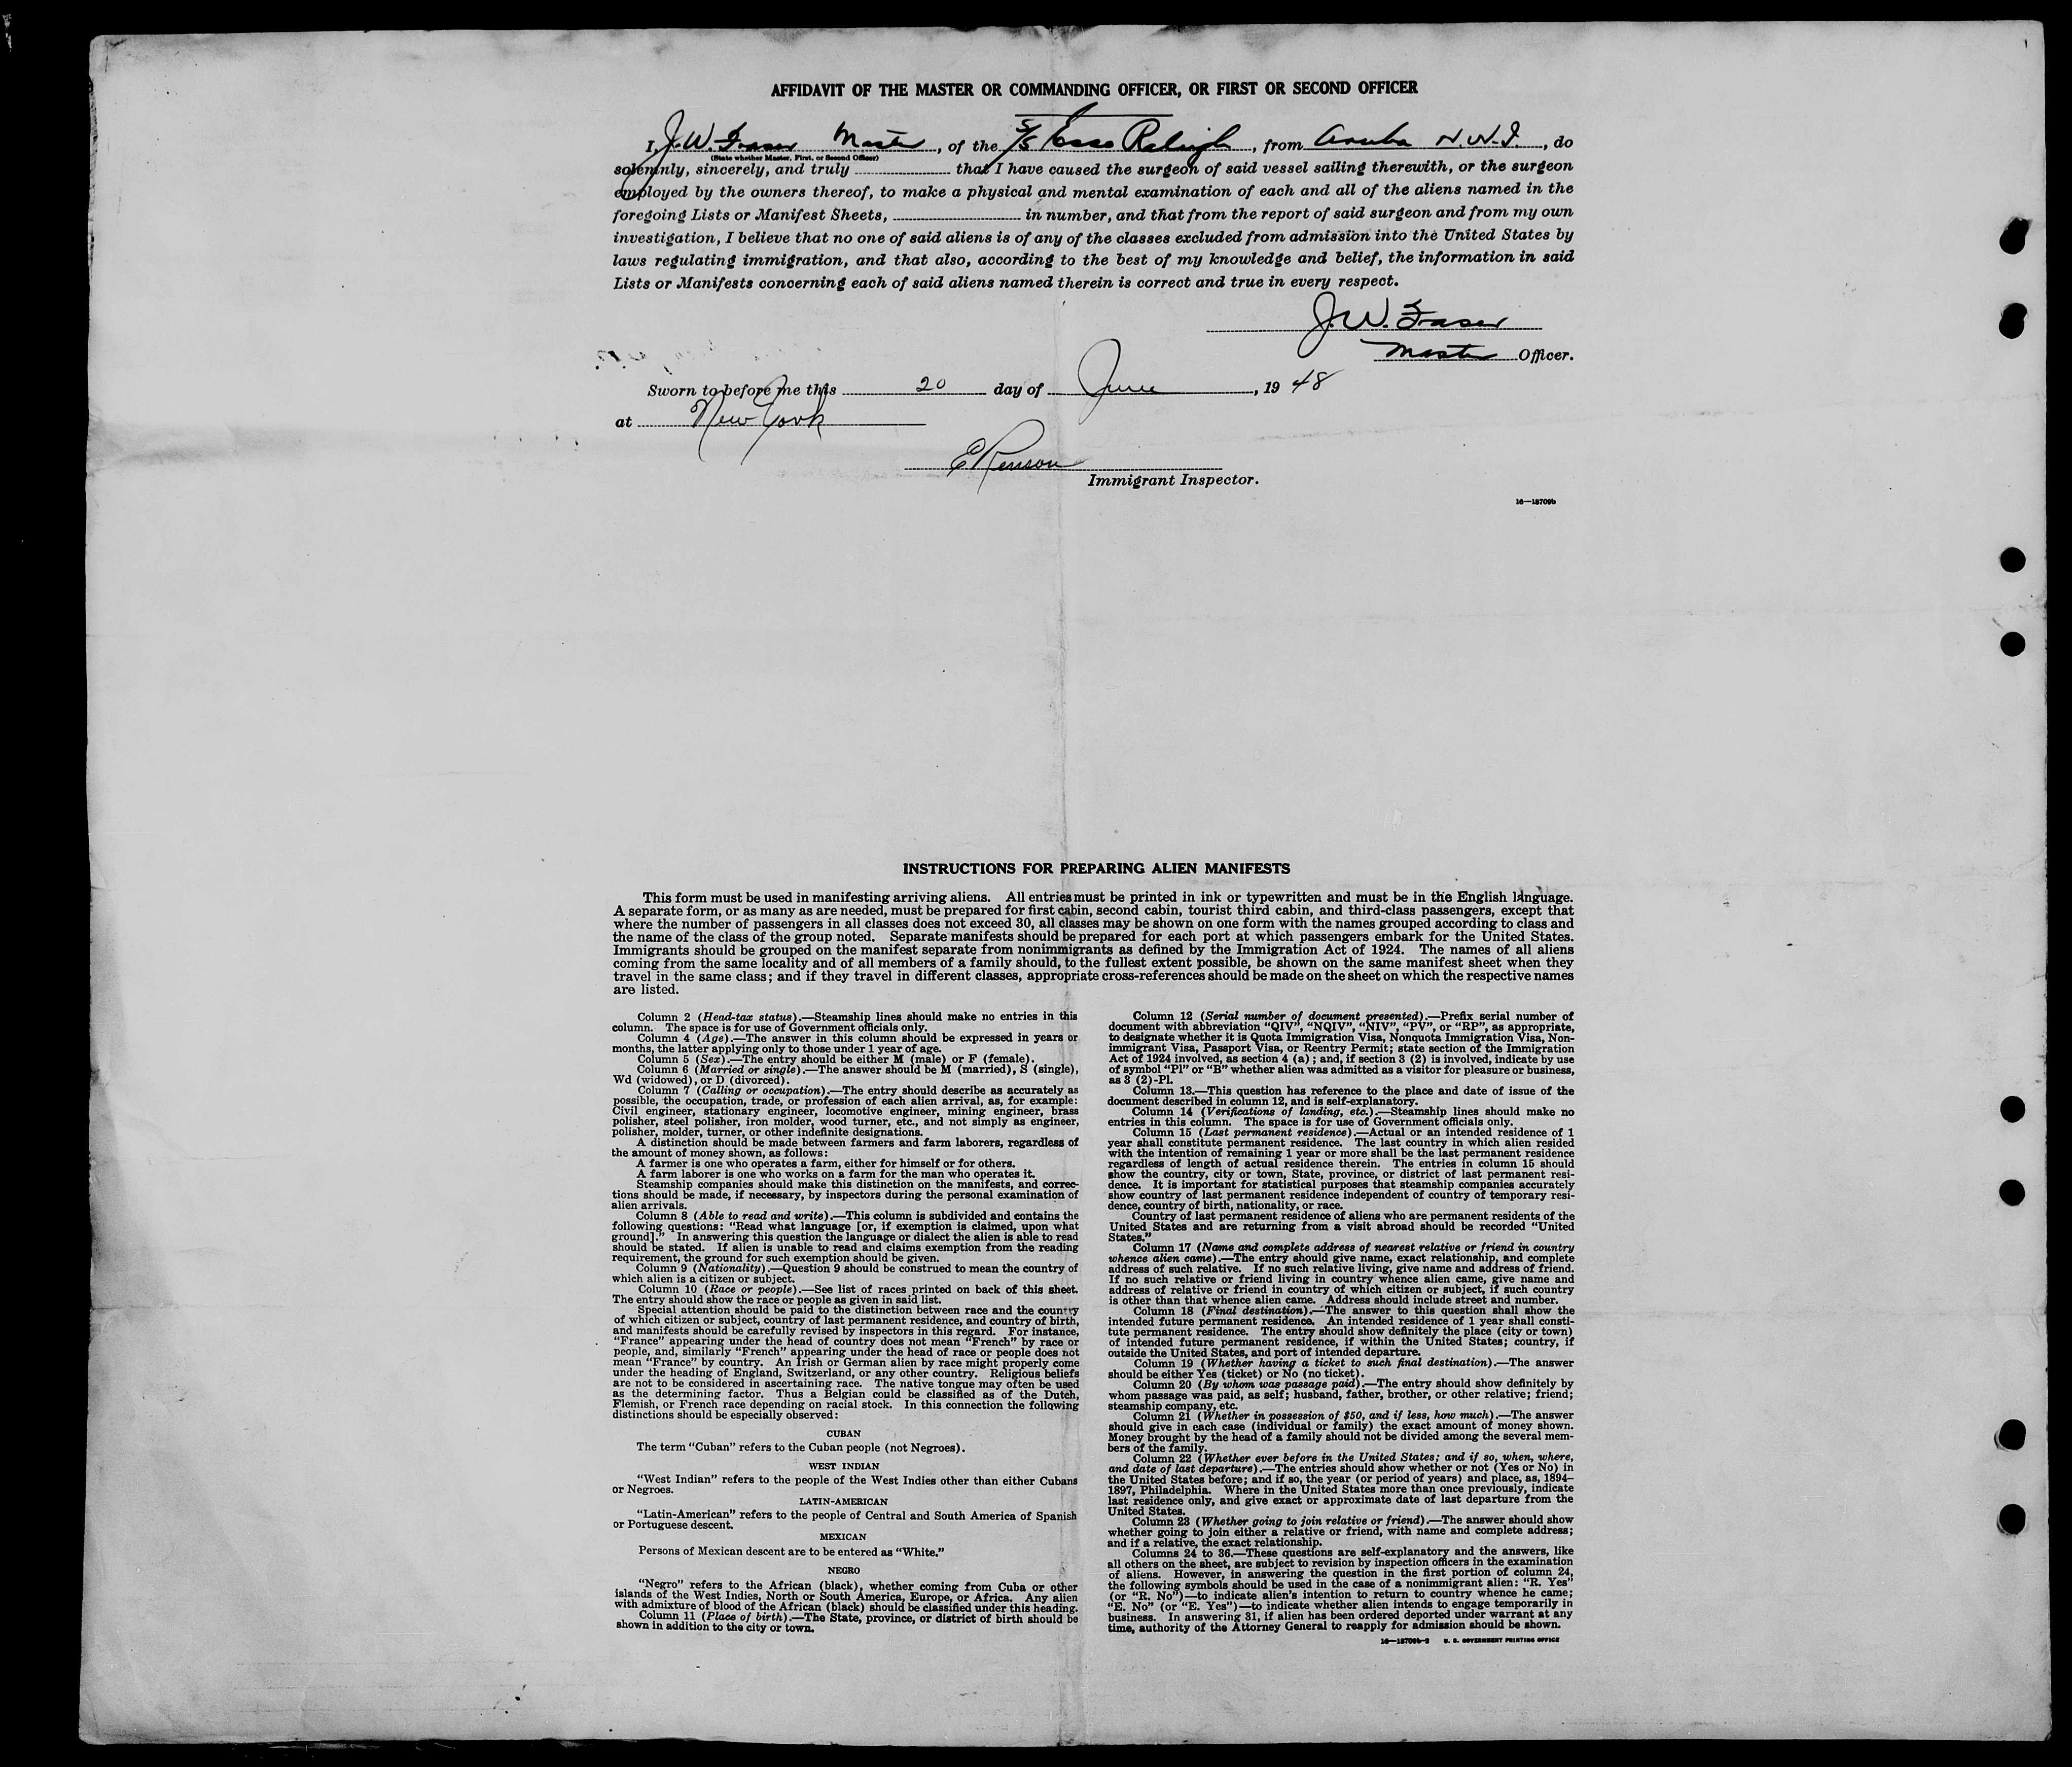 AFFIDAVIT OF THE MASTER OR COMMANDING OFFICER, OR FIRST OR SECOND OFFICER
I, J.W. Fraser Master, of the S/S Esso Raleigh, from Aruba N.W.I., do
(State whether Master, First, or Second Officer)
solemnly, sincerely, and truly ____ that I have caused the surgeon of said vessel sailing therewith, or the surgeon
employed by the owners thereof, to make a physical and mental examination of each and all of the aliens named in the
foregoing Lists or Manifest Sheets, ____ in number, and that from the report of said surgeon and from my own
investigation, I believe that no one of said aliens is of any of the classes excluded from admission into the United States by
laws regulating immigration, and that also, according to the best of my knowledge and belief, the information in said
Lists or Manifests concerning each of said aliens named therein is correct and true in every respect.
J.W. Fraser
Master Officer.
Sworn to before me this 20 day of June, 1948
at New York
Immigrant Inspector.
16—18709b
INSTRUCTIONS FOR PREPARING ALIEN MANIFESTS
This form must be used in manifesting arriving aliens. All entries must be printed in ink or typewritten and must be in the English language.
A separate form, or as many as are needed, must be prepared for first cabin, second cabin, tourist third cabin, and third-class passengers, except that
where the number of passengers in all classes does not exceed 30, all classes may be shown on one form with the names grouped according to class and
the name of the class of the group noted. Separate manifests should be prepared for each port at which passengers embark for the United States.
Immigrants should be grouped on the manifest separate from nonimmigrants as defined by the Immigration Act of 1924. The names of all aliens
coming from the same locality and of all members of a family should, to the fullest extent possible, be shown on the same manifest sheet when they
travel in the same class; and if they travel in different classes, appropriate cross-references should be made on the sheet on which the respective names
are listed.
Column 2 (Head-tax status).—Steamship lines should make no entries in this
column. The space is for use of Government officials only.
Column 4 (Age).—The answer in this column should be expressed in years or
months, the latter applying only to those under 1 year of age.
Column 5 (Sex).—The entry should be either M (male) or F (female).
Column 6 (Married or single).—The answer should be M (married), S (single),
Wd (widowed), or D (divorced).
Column 7 (Calling or occupation).—The entry should describe as accurately as
possible, the occupation, trade, or profession of each alien arrival, as, for example:
Civil engineer, stationary engineer, locomotive engineer, mining engineer, brass
polisher, steel polisher, iron molder, wood turner, etc., and not simply as engineer,
polisher, molder, turner, or other indefinite designations.
A distinction should be made between farmers and farm laborers, regardless of
the amount of money shown, as follows:
A farmer is one who operates a farm, either for himself or for others.
A farm laborer is one who works on a farm for the man who operates it.
Steamship companies should make this distinction on the manifests, and correc-
tions should be made, if necessary, by inspectors during the personal examination of
alien arrivals.
Column 8 (Able to read and write).—This column is subdivided and contains the
following questions: “Read what language [or, if exemption is claimed, upon what
ground].” In answering this question the language or dialect the alien is able to read
should be stated. If alien is unable to read and claims exemption from the reading
requirement, the ground for such exemption should be given.
Column 9 (Nationality).—Question 9 should be construed to mean the country of
which alien is a citizen or subject.
Column 10 (Race or people).—See list of races printed on back of this sheet.
The entry should show the race or people as given in said list.
Special attention should be paid to the distinction between race and the country
of which citizen or subject, country of last permanent residence, and country of birth,
and manifests should be carefully revised by inspectors in this regard. For instance,
“France” appearing under the head of country does not mean “French” by race or
people, and, similarly “French” appearing under the head of race or people does not
mean “France” by country. An Irish or German alien by race might properly come
under the heading of England, Switzerland, or any other country. Religious beliefs
are not to be considered in ascertaining race. The native tongue may often be used
as the determining factor. Thus a Belgian could be classified as of the Dutch,
Flemish, or French race depending on racial stock. In this connection the following
distinctions should be especially observed:
CUBAN
The term “Cuban” refers to the Cuban people (not Negroes).
WEST INDIAN
“West Indian” refers to the people of the West Indies other than either Cubans
or Negroes.
LATIN-AMERICAN
“Latin-American” refers to the people of Central and South America of Spanish
or Portuguese descent.
MEXICAN
Persons of Mexican descent are to be entered as “White.”
NEGRO
“Negro” refers to the African (black), whether coming from Cuba or other
islands of the West Indies, North or South America, Europe, or Africa. Any alien
with admixture of blood of the African (black) should be classified under this heading.
Column 11 (Place of birth).—The State, province, or district of birth should be
shown in addition to the city or town.
Column 12 (Serial number of document presented).—Prefix serial number of
document with abbreviation “QIV”, “NQIV”, “NIV”, “PV”, or “RP”, as appropriate,
to designate whether it is Quota Immigration Visa, Nonquota Immigration Visa, Non-
immigrant Visa, Passport Visa, or Reentry Permit; state section of the Immigration
Act of 1924 involved, as section 4 (a); and, if section 3 (2) is involved, indicate by use
of symbol “Pl” or “B” whether alien was admitted as a visitor for pleasure or business,
as 3 (2)-Pl.
Column 13.—This question has reference to the place and date of issue of the
document described in column 12, and is self-explanatory.
Column 14 (Verifications of landing, etc.).—Steamship lines should make no
entries in this column. The space is for use of Government officials only.
Column 15 (Last permanent residence).—Actual or an intended residence of 1
year shall constitute permanent residence. The last country in which alien resided
with the intention of remaining 1 year or more shall be the last permanent residence
regardless of length of actual residence therein. The entries in column 15 should
show the country, city or town, State, province, or district of last permanent resi-
dence. It is important for statistical purposes that steamship companies accurately
show country of last permanent residence independent of country of temporary resi-
dence, country of birth, nationality, or race.
Country of last permanent residence of aliens who are permanent residents of the
United States and are returning from a visit abroad should be recorded “United
States.”
Column 17 (Name and complete address of nearest relative or friend in country
whence alien came).—The entry should give name, exact relationship, and complete
address of such relative. If no such relative living, give name and address of friend.
If no such relative or friend living in country whence alien came, give name and
address of relative or friend in country of which citizen or subject, if such country
is other than that whence alien came. Address should include street and number.
Column 18 (Final destination).—The answer to this question shall show the
intended future permanent residence. An intended residence of 1 year shall consti-
tute permanent residence. The entry should show definitely the place (city or town)
of intended future permanent residence, if within the United States; country, if
outside the United States, and port of intended departure.
Column 19 (Whether having a ticket to such final destination).—The answer
should be either Yes (ticket) or No (no ticket).
Column 20 (By whom was passage paid).—The entry should show definitely by
whom passage was paid, as self; husband, father, brother, or other relative; friend;
steamship company, etc.
Column 21 (Whether in possession of $50, and if less, how much).—The answer
should give in each case (individual or family) the exact amount of money shown.
Money brought by the head of a family should not be divided among the several mem-
bers of the family.
Column 22 (Whether ever before in the United States; and if so, when, where,
and date of last departure).—The entries should show whether or not (Yes or No) in
the United States before; and if so, the year (or period of years) and place, as, 1894–
1897, Philadelphia. Where in the United States more than once previously, indicate
last residence only, and give exact or approximate date of last departure from the
United States.
Column 23 (Whether going to join relative or friend).—The answer should show
whether going to join either a relative or friend, with name and complete address;
and if a relative, the exact relationship.
Columns 24 to 36.—These questions are self-explanatory and the answers, like
all others on the sheet, are subject to revision by inspection officers in the examination
of aliens. However, in answering the question in the first portion of column 24,
the following symbols should be used in the case of a nonimmigrant alien: “R. Yes”
(or “R. No”)—to indicate alien’s intention to return to country whence he came;
“E. No” (or “E. Yes”)—to indicate whether alien intends to engage temporarily in
business. In answering 31, if alien has been ordered deported under warrant at any
time, authority of the Attorney General to reapply for admission should be shown.
16—18709b-2 U. S. GOVERNMENT PRINTING OFFICE